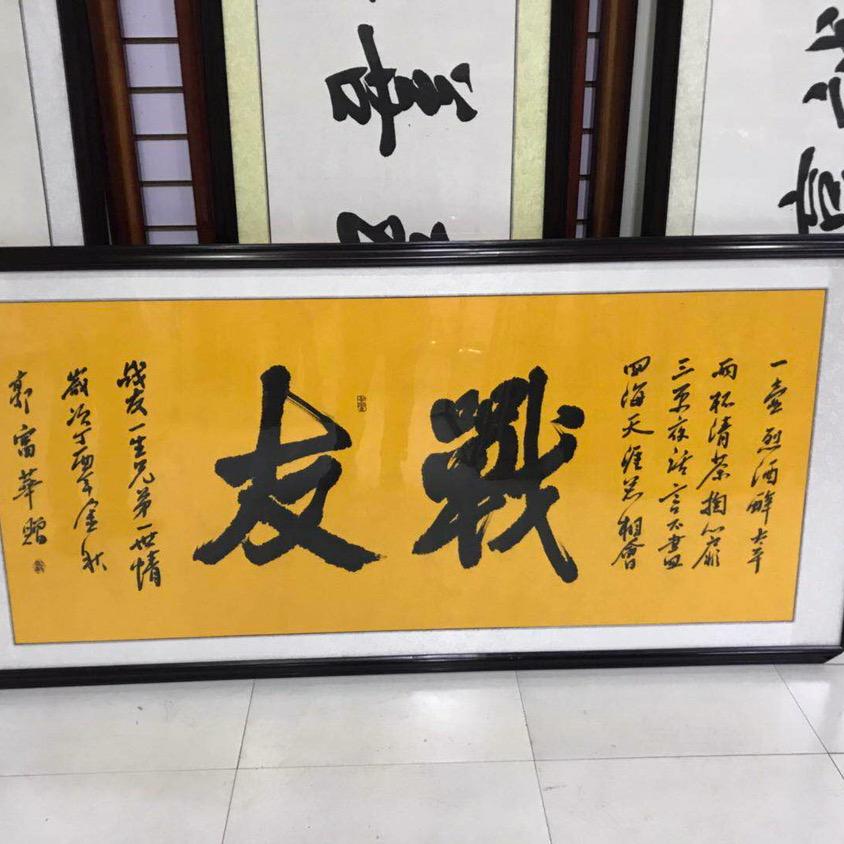 一壶烈酒醉太平
两杯清茶掏心扉
三更夜话言不盡
四海天涯相會
戰友
战友一生兄弟一世情
歲次丁酉年金秋
郭富華贈